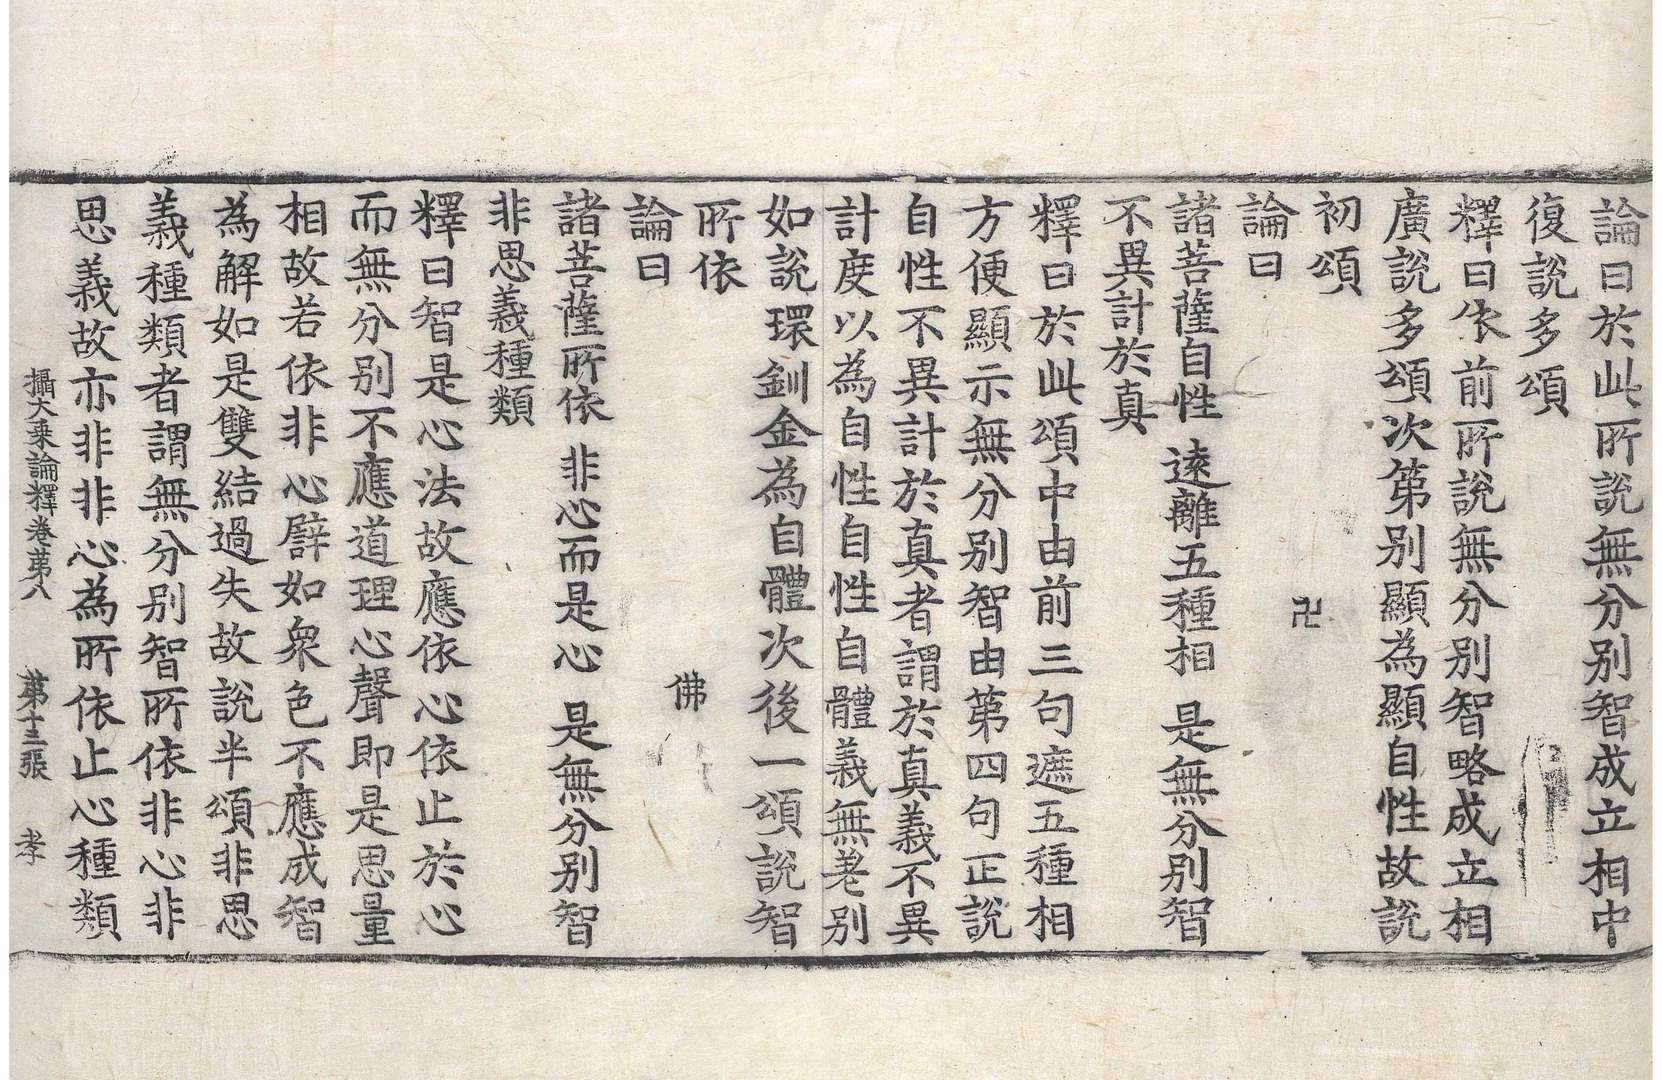 論曰於此所說無分別智成立相中
復說多頌
釋曰依前所說無分別智略成立相
廣說多頌次第別顯為顯自性故說
初頌
卍
論曰
諸菩薩自性 遠離五種相 是無分別智
不異計於真
釋曰於此頌中由前三句遮五種相
方便顯示無分別智由第四句正說
自性不異計於真者謂於真義不異
計度以為自性自性自體義無差別
如說環釧金為自體次後一頌說智
所依
佛
論曰
諸菩薩所依 非心而是心 是無分別智
非思義種類
釋曰智是心法故應依心依止於心
而無分別不應道理心聲即是思量
相故若依非心譬如衆色不應成智
為解如是雙結過失故說半頌非思
義種類者謂無分別智所依非心非
思義故亦非非心為所依止心種類
攝大乗論釋卷苐八 苐十三張 孝